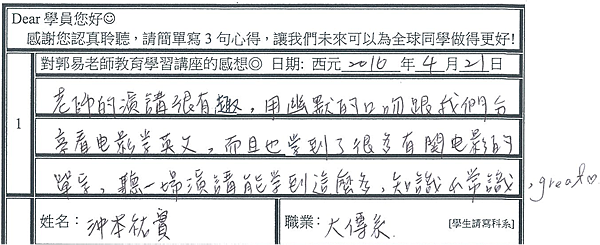 Dear 學員您好☺
感謝您認真聆聽，請簡單寫 3 句心得，讓我們未來可以為全球同學做得更好!
對郭易老師教育學習講座的感想◎ 日期: 西元 2016 年 4 月 21 日
1
老師的演講很有趣，用幽默的口吻跟我們分
享看电影学英文，而且也学到了很多有關电影的
單字，聽一場演講能学到這麼多，知識和常識，great♡
姓名: 沖本祐實 職業: 大傳系 [學生請寫科系]